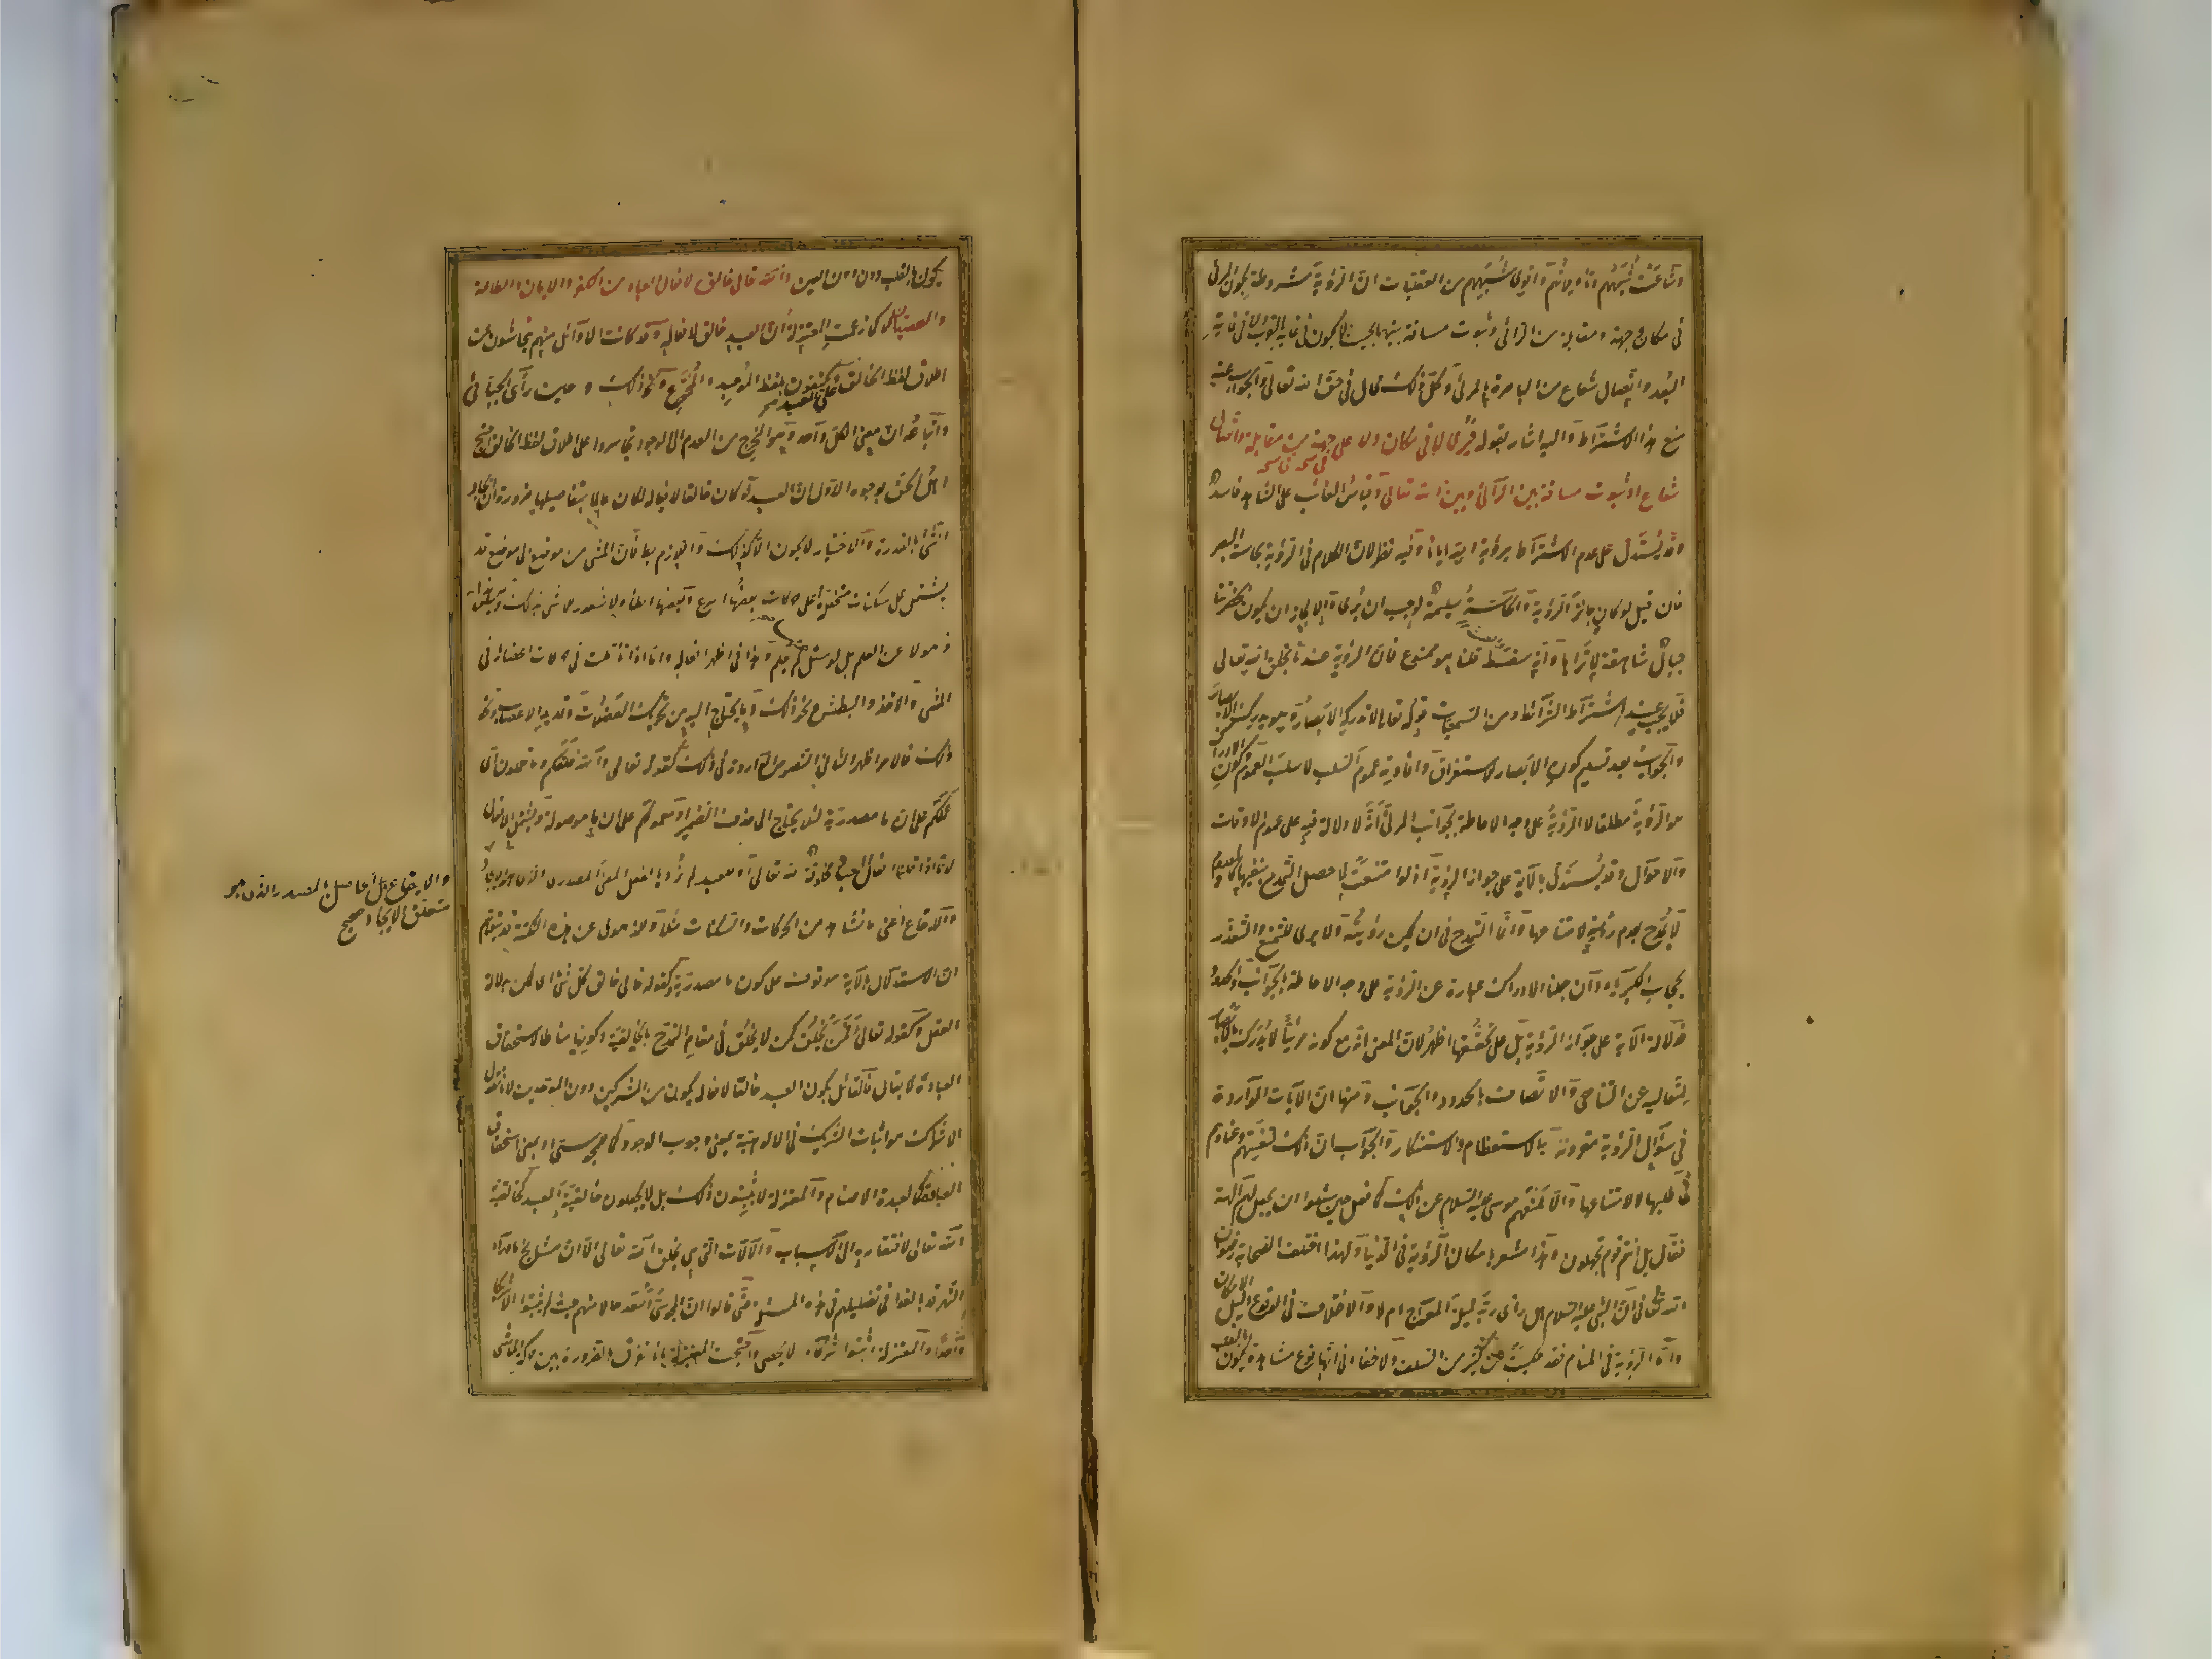 وشاعت شبههم وتأويلاتهم وأقوى شبههم من العقليات ان الرؤية مشروطة بكون المرئى
فى مكان وجهة ومقابلة من الرائى وثبوت مسافة بينهما بحيث لا يكون فى غاية القرب ولا فى غاية
البعد واتصال شعاع من الباصرة بالمرئى وكل ذلك محال فى حق الله تعالى والجواب عنه
منع هذا الاشتراط واليه اشار بقوله فيرى لا فى مكان ولا على جهة من مقابلة واتصال
شعاع او ثبوت مسافة بين الرائى وبين الله تعالى وقياس الغائب على الشاهد فاسد
وقد يستدل على عدم الاشتراط برؤية الله ايانا وفيه نظر لان الكلام فى الرؤية بحاسة البصر
فان قيل لو كان جائز الرؤية والحاسة سليمة لوجب ان يرى والا لجاز ان يكون بحضرتنا
جبال شاهقة لا نراها وانه سفسطة قلنا هو ممنوع فان الرؤية عندنا بخلق الله تعالى
فلا يجب عند اشتراط الشرائط ومن السمعيات قوله تعالى لا تدركه الابصار وهو يدرك الابصار
والجواب بعد تسليم كون الابصار للاستغراق وافادته عموم السلب لا سلب العموم وكون الادراك
هو الرؤية مطلقا لا الرؤية على وجه الاحاطة بجوانب المرئى انه لا دلالة فيه على عموم الاوقات
والاحوال وقد يستدل بالآية على جواز الرؤية اذ لو امتنعت لما حصل التمدح بنفيها كالمعدوم
لا يمدح بعدم رؤيته لامتناعها وانما التمدح فى ان يمكن رؤيته ولا يرى للتمنع والتعذر
بحجاب الكبرياء وان جعلنا الادراك عبارة عن الرؤية على وجه الاحاطة بالجوانب والحدود
فدلالة الآية على جواز الرؤية بل على تحققها اظهر لان المعنى انه مع كونه مرئيا لا يدرك بالابصار
لتعاليه عن التناهى والاتصاف بالحدود والجوانب ومنها ان الآيات الواردة
فى سؤال الرؤية مقرونة بالاستعظام والاستنكار والجواب ان ذلك لتعنتهم وعنادهم
فى طلبها لا لامتناعها والا لمنعهم موسى عليه السلام عن ذلك كما فعل حين سألوا ان يجعل لهم آلهة
فقال بل انتم قوم تجهلون وهذا مشعر بامكان الرؤية فى الدنيا ولهذا اختلف الصحابة رضوان
الله فى ان النبى عليه السلام هل رأى ربه ليلة المعراج ام لا والاختلاف فى الوقوع دليل الامكان
واما الرؤية فى المنام فقد حكيت عن كثير من السلف ولا خفاء فى انها نوع مشاهدة يكون بالقلب
يكون بالقلب دون العين والله تعالى خالق لافعال العباد من الكفر والايمان والطاعة
والعصيان لا كما زعمت المعتزلة ان العبد خالق لافعاله وقد كانت الاوائل منهم يتحاشون عن
اطلاق لفظ الخالق على العبد ويكتفون بلفظ الموجد والمخترع ونحو ذلك وحين رأى الجبائى
واتباعه ان معنى الكل واحد وهو المخرج من العدم الى الوجود تجاسروا على اطلاق لفظ الخالق احتج
اهل الحق بوجوه الاول ان العبد لو كان خالقا لافعاله لكان عالما بتفاصيلها ضرورة ان ايجاد
الشئ بالقدرة والاختيار لا يكون الا كذلك واللازم بط فان المشى من موضع الى موضع قد
يشتمل على سكنات متخللة وعلى حركات بعضها اسرع وبعضها ابطأ ولا شعور للماشى بذلك وليس هذا
ذهولا عن العلم بل لو سئل لم يعلم وهذا فى اظهر افعاله واما اذا تأملت فى حركات اعضائه فى
المشى والاخذ والبطش ونحو ذلك وما يحتاج اليه من تحريك العضلات وتمديد الاعصاب ونحو
ذلك فالامر اظهر الثانى النصوص الواردة فى ذلك كقوله تعالى والله خلقكم وما تعملون اى
عملكم على ان ما مصدرية لئلا يحتاج الى حذف الضمير او معمولكم على ان ما موصولة ويشمل الافعال
لانا اذا قلنا افعال العباد مخلوقة لله تعالى او للعبد لم نرد بالفعل المعنى المصدرى الذى هو الايجاد
والايقاع اعنى ما نشاهد من الحركات والسكنات مثلا وللذهول عن هذه النكتة قد يتوهم
ان الاستدلال بالآية موقوف على كون ما مصدرية وكقوله تعالى خالق كل شئ اى ممكن بدلالة
العقل وكقوله تعالى افمن يخلق كمن لا يخلق فى مقام التمدح بالخالقية وكونها مناطا لاستحقاق
العبادة لا يقال فالقائل بكون العبد خالقا لافعاله يكون من المشركين دون الموحدين لانا نقول
الاشراك هو اثبات الشريك فى الالوهية بمعنى وجوب الوجود كما للمجوس او بمعنى استحقاق
العبادة كما لعبدة الاصنام والمعتزلة لا يثبتون ذلك بل لا يجعلون خالقية العبد كخالقية
الله تعالى لافتقاره الى الاسباب والآلات التى هى بخلق الله تعالى الا ان مشايخ ما وراء
النهر قد بالغوا فى تضليلهم فى هذه المسئلة حتى قالوا ان المجوس اسعد حالا منهم حيث لم يثبتوا الا شريكا
واحدا والمعتزلة اثبتوا شركاء لا يحصى واحتجت المعتزلة بانا نفرق بالضرورة بين حركة الماشى
والايقاع بل الحاصل بالمصدر الذى هو
متعلق الايجاد صح